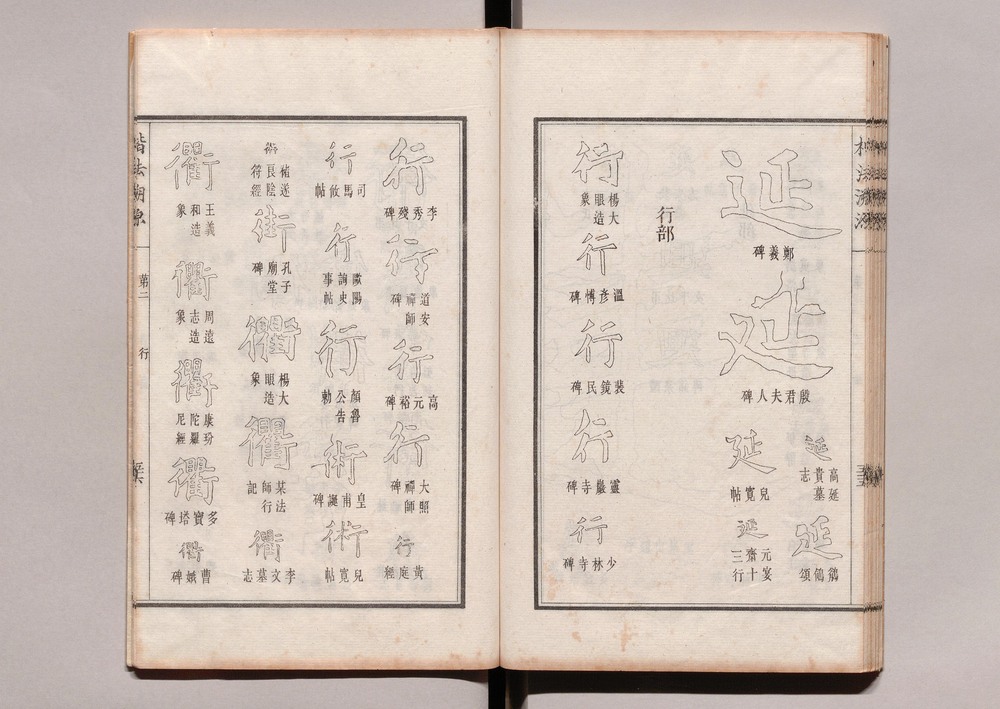 延
鄭羲碑
延
殷君夫人碑
延
高延貴墓志
延
鶺鴒頌
延
兒寬帖
延
元宴齋三十行
行部
行
楊大眼造象
行
溫彥博碑
行
裴鏡民碑
行
靈巖寺碑
行
少林寺碑
行
李秀殘碑
行
道安禪師碑
行
高元裕碑
行
大照禪師碑
行
黃庭經
行
司馬攸帖
行
歐陽詢史事帖
行
顏魯公告勅
術
皇甫誕碑
術
兒寬帖
術
褚遂良陰符經
街
孔子廟堂碑
衢
楊大眼造象
衢
某法師行記
衢
李文墓志
衢
王義和造象
衢
周遠志造象
衢
康玢陀羅尼經
衢
多寶塔碑
衢
曹娥碑
楷法溯源
第二
行